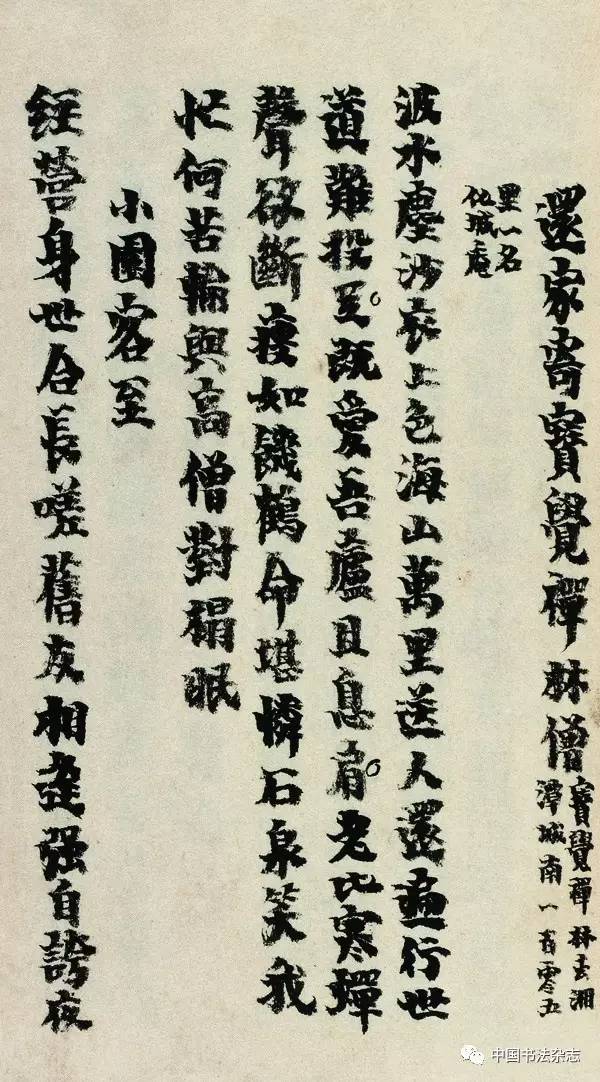 還家寄寶覺禪林僧
寶覺禪林去湘
潭城南一百零五
里一名
化城庵
波水塵沙衣上色海山萬里送人還遍行世
道難投足既愛吾廬且息肩老比寒蟬
聲欲斷瘦如饑鶴命堪憐石泉笑我
忙何苦輸與高僧對榻眠
小園客至
經營身世合長嗟舊友相逢強自誇夜
中国书法杂志